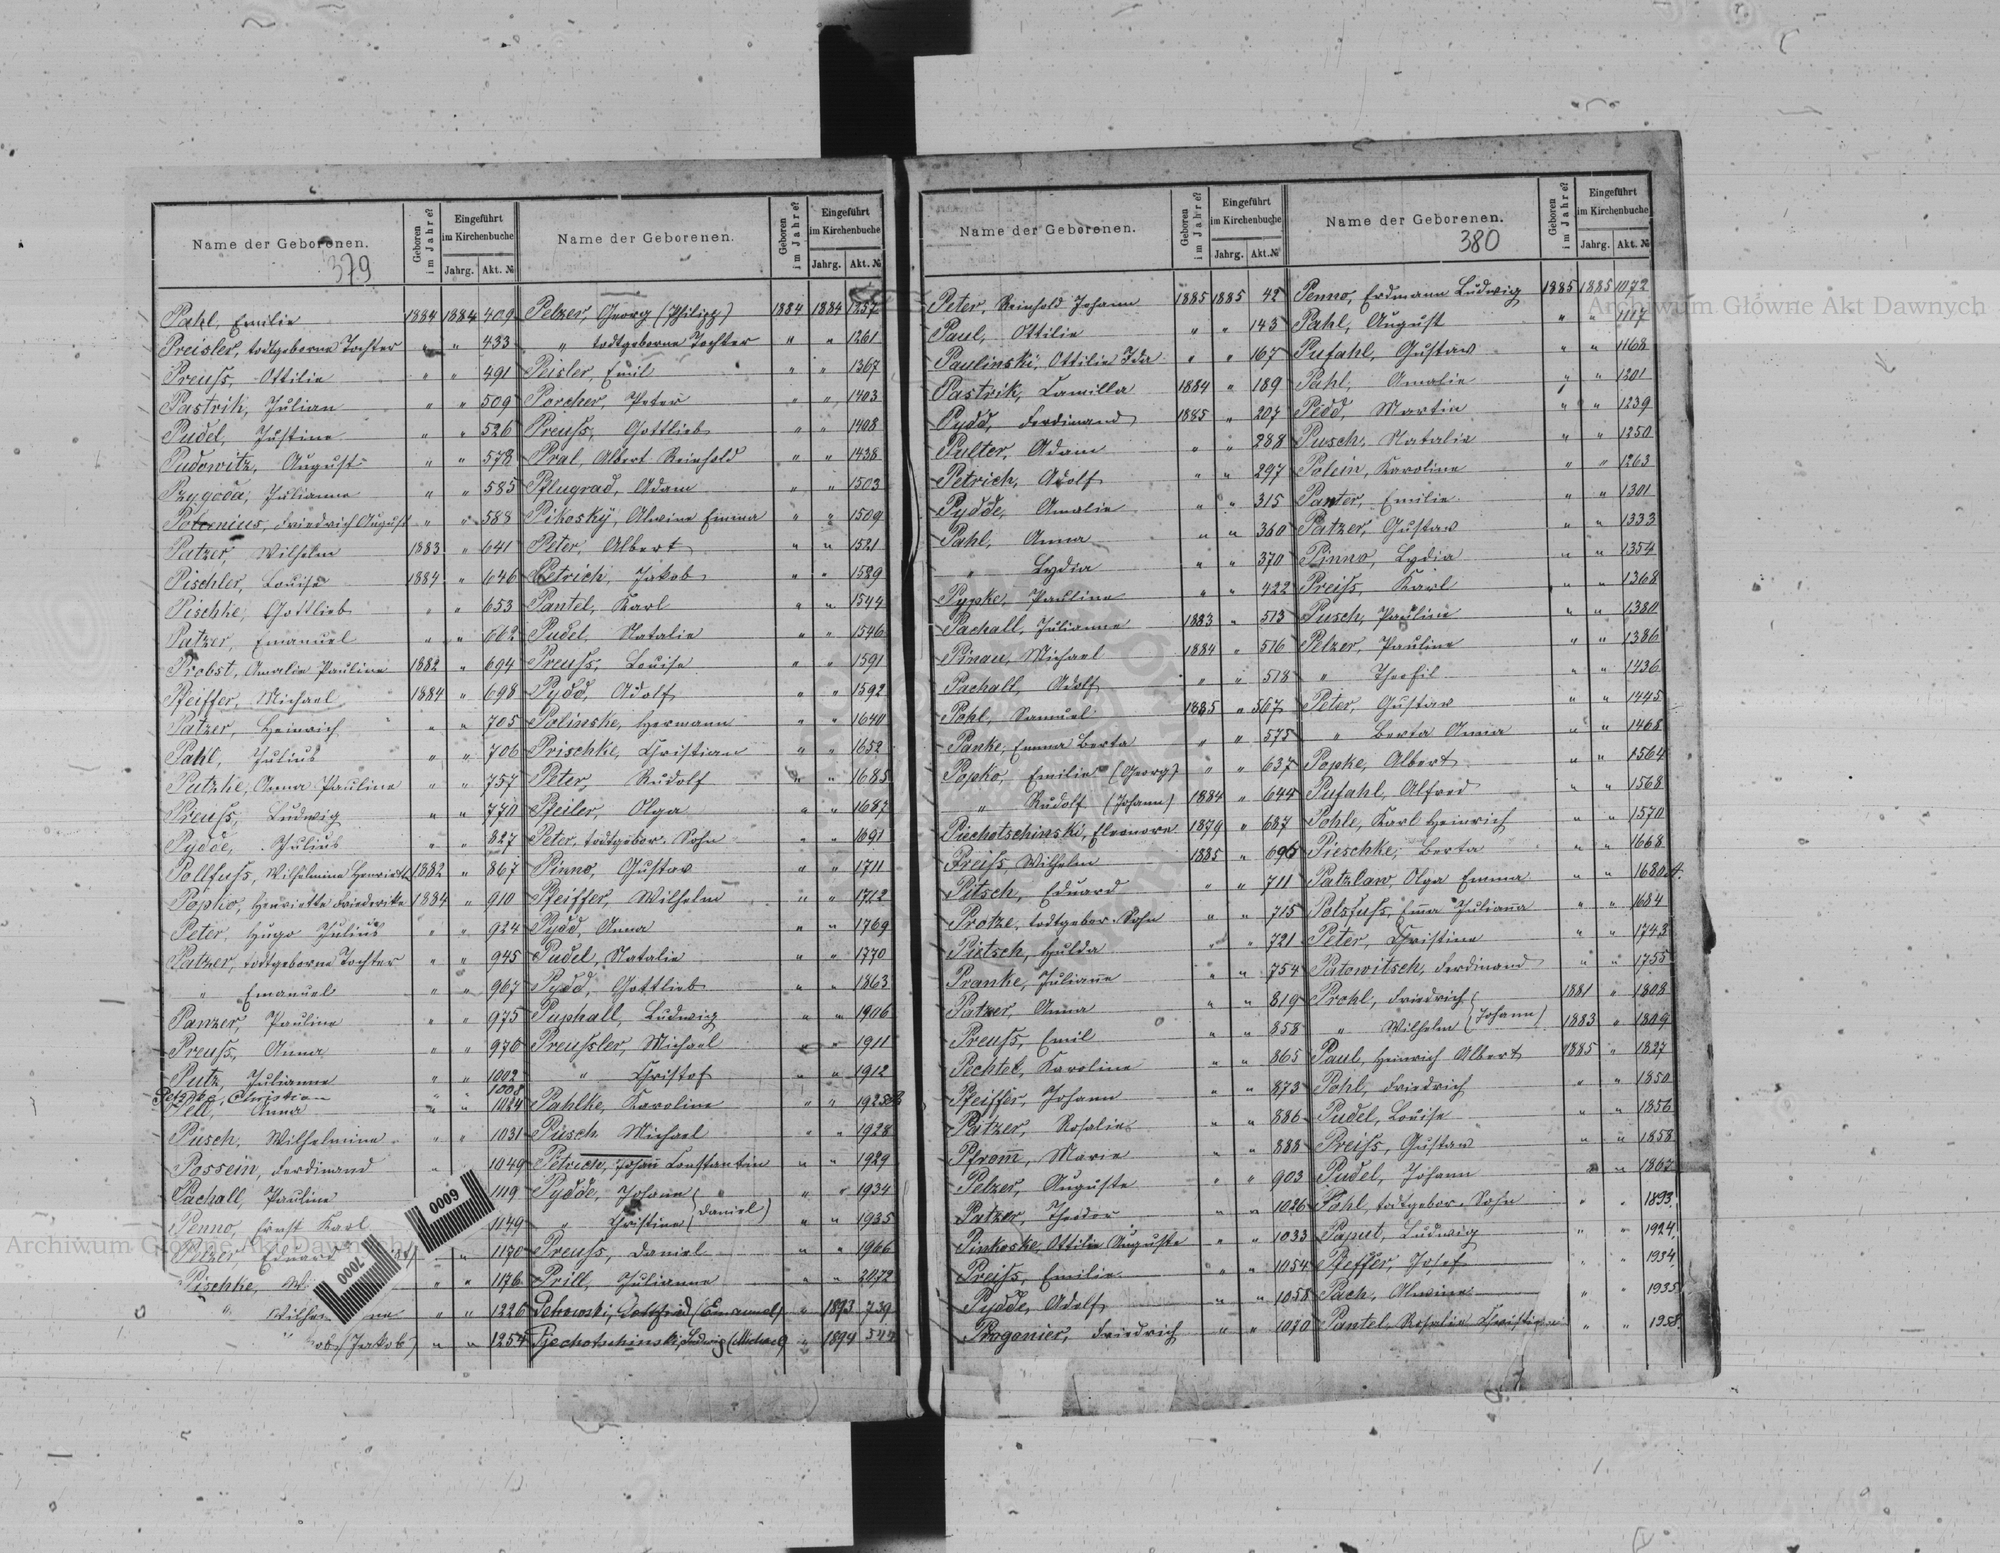 Name der Geborenen. Geboren im Jahre? Eingeführt im Kirchenbuche Jahrg. Akt. №
379
Pahl, Emilie 1884 1884 409
Preisler, todtgeborne Tochter " " 433
Preuss, Ottilie " " 491
Pastrik, Julian " " 509
Pudel, Justine " " 526
Pudowitz, August " " 578
Pzygoda, Julianne " " 585
Potenius, Friedrich August " " 588
Patzer, Wilhelm 1883 " 641
Pischler, Louise 1884 " 646
Pischke, Gottlieb " " 653
Patzer, Emanuel " " 662
Probst, Amalie Pauline 1882 " 694
Pfeiffer, Michael 1884 " 698
Patzer, Heinrich " " 705
Pahl, Julius " " 706
Patzke, Anna Pauline " " 757
Preuss, Ludwig " " 770
Pydde, Julius " " 827
Pollfuss, Wilhelmine Henriette 1882 " 867
Popko, Henriette Friederike 1884 " 910
Peter, Hugo Julius " " 924
Patzer, todtgeborne Tochter " " 945
" Emanuel " " 967
Panzer, Pauline " " 975
Preuss, Anna " " 976
Putz, Julianne " " 1002
Christian " 1008
Pell, Anna " " 1024
Pusch, Wilhelmine " " 1031
Possein, Ferdinand " 1049
Pachall, Pauline 1119
Penno, Ernst Karl 1149
Pelzer, Eduard " 1170
Pischke, " " 1176
" " " 1226
(Jakob) " " 1254
0009
7000
Name der Geborenen. Geboren im Jahre? Eingeführt im Kirchenbuche Jahrg. Akt. №
Pelzer, Georg (Philipp) 1884 1884 1257
" todtgeborne Tochter " " 1261
Peisler, Emil " " 1367
Porcher, Peter " " 1403
Preuss, Gottlieb " " 1408
Pral, Albert Reinhold " " 1438
Pflugrad, Adam " " 1503
Pikosky, Alwine Emma " " 1509
Peter, Albert " " 1521
Petrich, Jakob " " 1529
Pantel, Karl " " 1544
Pudel, Natalie " " 1546
Preuss, Louise " " 1591
Pydd, Adolf " " 1592
Polinske, Hermann " " 1640
Prischke, Christian " " 1652
Peter, Rudolf " " 1685
Pfeiler, Olga " " 1687
Peter, todtgebor. Sohn " " 1691
Pinno, Gustav " " 1711
Pfeiffer, Wilhelm " " 1712
Pydd, Anna " " 1769
Pudel, Natalie " " 1770
Pydd, Gottlieb " " 1863
Puphall, Ludwig " " 1906
Preussler, Michael " " 1911
" Christof " " 1912
Pahlke, Karoline " " 1925
Pusch, Michael " " 1928
Petrich, Johann Constantin " " 1929
Pydde, Johann ( " " " 1934
" Christine (Daniel) " " 1935
Preuss, Daniel " " 1966
Prill, Julianne " " 2072
Petrowski, Gottfried (Emanuel) " 1893 739
Pjechotschinski, Ludwig (Michael) " 1894 544
Name der Geborenen. Geboren im Jahre? Eingeführt im Kirchenbuche Jahrg. Akt. №
Peter, Reinhold Johann 1885 1885 42
Paul, Ottilie " " 143
Paulinski, Ottilie Ida " " 167
Pastrik, Camilla 1884 " 189
Pydd, Ferdinand 1885 " 207
Pulter, Adam " " 288
Petrich, Adolf " " 297
Pydde, Amalie " " 315
Pahl, Anna " " 360
" Lydia " " 370
Pypke, Pauline " " 422
Pachall, Julianne 1883 " 513
Pinau, Michael 1884 " 516
Pachall, Adolf " " 518
Pohl, Samuel 1885 " 567
Panke, Emma Berta " " 575
Popko, Emilie (Georg) " " 637
" Rudolf (Johann) 1884 " 644
Piechotschinski, Eleonore 1879 " 687
Preiss, Wilhelm 1885 " 696
Pitsch, Eduard " " 711
Protze, todtgebor. Sohn " " 715
Pietsch, Hulda " " 721
Pranke, Julianne " " 754
Patzer, Anna " " 819
Preuss, Emil " " 858
Pechtel, Karoline " " 865
Pfeiffer, Johann " " 873
Patzer, Rosalie " " 886
Pfromm, Marie " " 888
Pelzer, Auguste " " 903
Patzer, Theodor " " 1026
Pinkoske, Ottilie Auguste " " 1033
Preiss, Emilie " " 1054
Pydde, Adolf " " 1058
Poganier, Friedrich " " 1070
Name der Geborenen. Geboren im Jahre? Eingeführt im Kirchenbuche Jahrg. Akt. №
380
Penno, Erdmann Ludwig 1885 1885 1072
Pahl, August " " 1117
Pufahl, Gustav " " 1168
Pahl, Amalie " " 1201
Pidd, Martin " " 1239
Pusch, Natalie " " 1250
Polein, Karoline " " 1263
Panter, Emilie " " 1301
Patzer, Gustav " " 1333
Pinno, Lydia " " 1354
Preiss, Karl " " 1368
Pusch, Pauline " " 1380
Pelzer, Pauline " " 1386
" Theofil " " 1436
Peter, Gustav " " 1445
" Berta Anna " " 1468
Popke, Albert " " 1564
Pufahl, Alfred " " 1568
Pohle, Karl Heinrich " " 1570
Pieschke, Berta " " 1668
Patzlaw, Olga Emma " " 1680 A.
Polsfuss, Emma Julianna " " 1684
Peter, Christine " " 1743
Patowitsch, Ferdinand " " 1755
Prohl, Friedrich ( 1881 " 1808
" Wilhelm (Johann) 1883 " 1809
Paul, Heinrich Albert 1885 " 1827
Pohl, Friedrich " " 1850
Pudel, Louise " " 1856
Preiss, Gustav " " 1858
Pudel, Johann " " 1867
Pohl, todtgebor. Sohn " " 1893
Paput, Ludwig " " 1924
Pfeffer, Josef " " 1934
Pach, Alwine " " 1935
Pantel, Rosalie Christine " " 1958
Archiwum Główne Akt Dawnych
Archiwum Główne Akt Dawnych